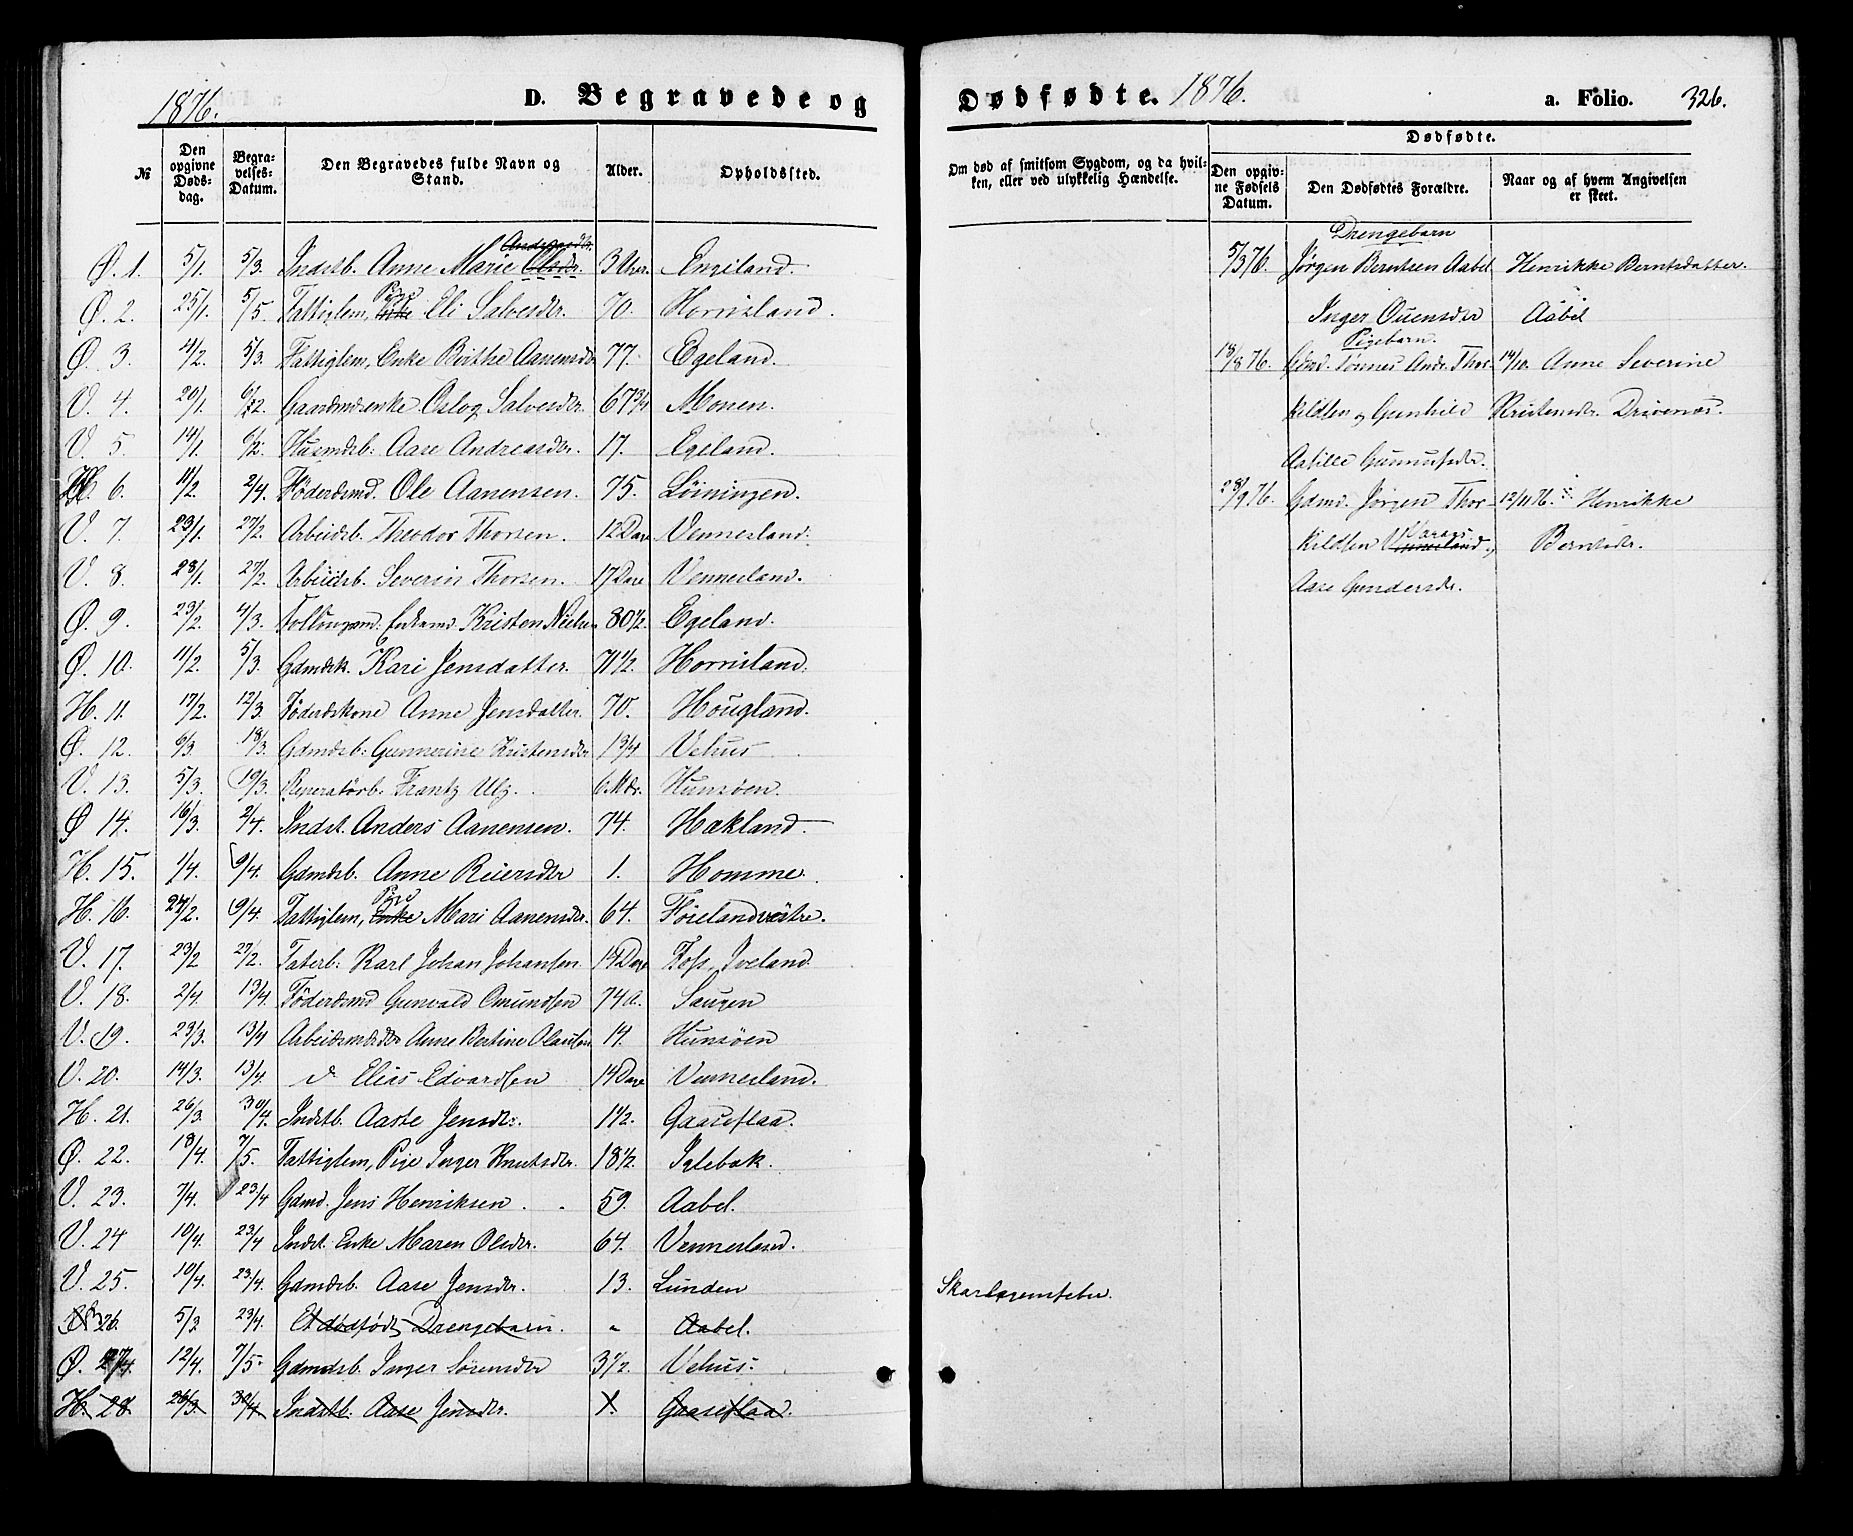 1876.
D. Begravede og
№
Den opgivne Døds-dag.
Begra-velses-Datum.
Den Begravedes fulde Navn og Stand.
Alder.
Opholdssted.
Andersdtr.
Ø. 1. 5/1. 5/3. Indstb. Anne Marie Olsdr. 3 Uger. Engeland.
Pige
Ø. 2. 25/1. 5/5. Fattiglem, Enke Eli Salvesdtr. 70. Hornisland.
Ø. 3. 4/2. 5/3. Fattiglem, Enke Birthe Aanensdtr 77. Egeland.
V. 4. 20/1. 6/2. Gaardmdsenke Oslog Salvesdtr. 67 3/4 Monen.
V. 5. 14/1. 6/2. Husmdsb. Aase Andreasdtr. 17. Egeland.
H. 6. 11/2. 2/4. Føderdsmd. Ole Aanensen. 75. Løiningen.
V. 7. 23/1. 27/2. Arbeidsb. Theodor Thorsen. 12 Dage Vennesland.
V. 8. 28/1. 27/2. Arbeidsb. Severin Thorsen. 17 Dage Vennesland.
Ø. 9. 23/2. 4/3. Enkemd. Kristen Nielsen 80 1/2. Egeland.
Ø. 10. 11/2. 5/3. Gdmdsk. Kari Jensdatter. 71 1/2. Hornisland.
H. 11. 17/2. 12/3. Føderdskone Anne Jensdatter. 70. Hougland.
Ø. 12. 6/3. 18/3. Gdmdsb. Gunnerine Kristensdtr 1 3/4 Vehus
V. 13. 5/3. 19/3. Reperatørb. Frantz Ulz. 6 Mdr. Hunsøen.
Ø 14. 16/3. 2/4. Indst. Anders Aanensen. 74. Hakland.
H. 15. 1/4. 9/4. Gdmdsb. Anne Reiersdtr 1. Homme.
Pige
H. 16. 24/2. 9/4. Fattiglem, Enke Mari Aanensdtr. 64. Føielandvestre.
V. 17. 23/2 27/2. Taterb. Karl Johan Johansen 14 Dage Iveland.
V. 18. 2/4. 13/4. Føderdsmd Gunvald Omundsen 74 A. Saugen
V. 19. 23/3. 13/4 Arbeidsmdsdtr Anne Bertine Olausen 14. Hunsøen
V. 20. 14/3. 13/4. do Elias Edvardsen 14 Dage Vennesland.
H. 21. 26/3. 30/4. Indstb. Aaste Jensdtr. 1 1/2. Gaaseflaa.
Ø. 22. 18/4. 7/5. Fattiglem, Pige Inger Knutsdtr. 18 1/2. Iglebæk.
V. 23. 7/4. 23/4 Gdmd. Jens Henriksen. 59. Aabel.
V. 24 10/4. 23/4 Indst. Enke Maren Olsdtr. 64. Vennesland.
V. 25. 10/4. 23/4. Gdmdsb. Aase Jensdtr. 13. Lunden
V. 26. 5/3 23/4. Et dødfødt Drengebarn. " Aabel.
Ø. 27. 12/4. 7/5. Gdmdsb. Inger Sørensdtr 3 1/2. Vehus.
H. 28 26/3. 30/4. Indstb. Aase Jensdtr. 1. Gaaseflaa.
Dødfødte. 1876.
a. Folio. 326.
Om død af smitsom Sygdom, og da hvil-ken, eller ved ulykkelig Hændelse.
Dødfødte.
Den opgiv-ne Fødsels Datum.
Den Dødfødtes Forældre.
Naar og af hvem Angivelsen er skeet.
Drengebarn
5/3 76. Jørgen Berntsen Aabel Henrikke Berntsdatter.
Inger Ouensdtr Aabel
Pigebarn.
18/8 76. Gdmd. Tønnes Andr. Thor- 14/10. Anne Severine
kildsen og Gunhild Kristensdtr. Drivenæs.
Aasille Gunnufsdtr.
28/9 76. Gdmd. Jørgen Thor- 12/11 76. Henrikke
kildsen Vennesland, Berntsdtr.
Aase Gundersdtr.
Skarlagensfeber.